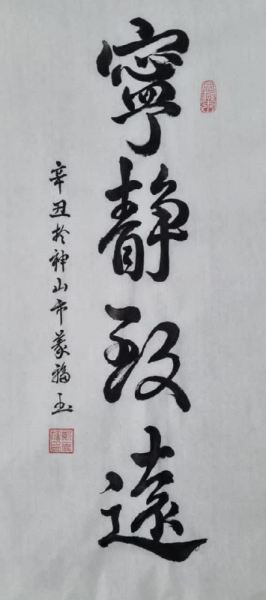 寧靜致遠
辛丑於神山市蒙福玉